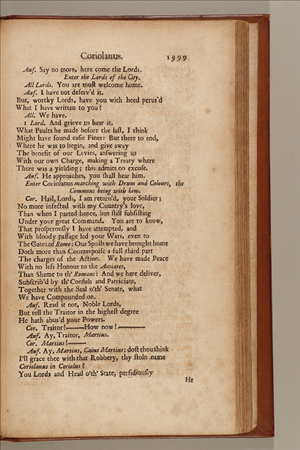 Coriolanus. 1999
Auf. Say no more, here come the Lords.
Enter the Lords of the City.
All Lords. You are most welcome home.
Auf. I have not deserv'd it.
But, worthy Lords, have you with heed perus'd
What I have written to you?
All. We have.
1 Lord. And grieve to hear it.
What Faults he made before the last, I think
Might have found easie Fines: But there to end,
Where he was to begin, and give away
The benefit of our Levies, answering us
With our own Charge, making a Treaty where
There was a yielding; this admits no excuse.
Auf. He approaches, you shall hear him.
Enter Coriolanus marching with Drum and Colours, the
Commons being with him.
Cor. Hail, Lords, I am return'd, your Soldier;
No more infected with my Country's love,
Than when I parted hence, but still subsisting
Under your great Command. You are to know,
That prosperously I have attempted, and
With bloody passage led your Wars, even to
The Gates of Rome: Our Spoils we have brought home
Doth more than Counterpoise a full third part
The charges of the Action. We have made Peace
With no less Honour to the Antiates,
Than Shame to th' Romans: And we here deliver,
Subscrib'd by th' Consuls and Patricians,
Together with the Seal o'th' Senate, what
We have Compounded on.
Auf. Read it not, Noble Lords,
But tell the Traitor in the highest degree
He hath abus'd your Powers.
Cor. Traitor!—— How now!——
Auf. Ay, Traitor, Martius.
Cor. Martius!——
Auf. Ay, Martius, Caius Martius; dost thou think
I'll grace thee with that Robbery, thy stoln name
Coriolanus in Coriolus?
You Lords and Head o'th' State, perfidiously
He